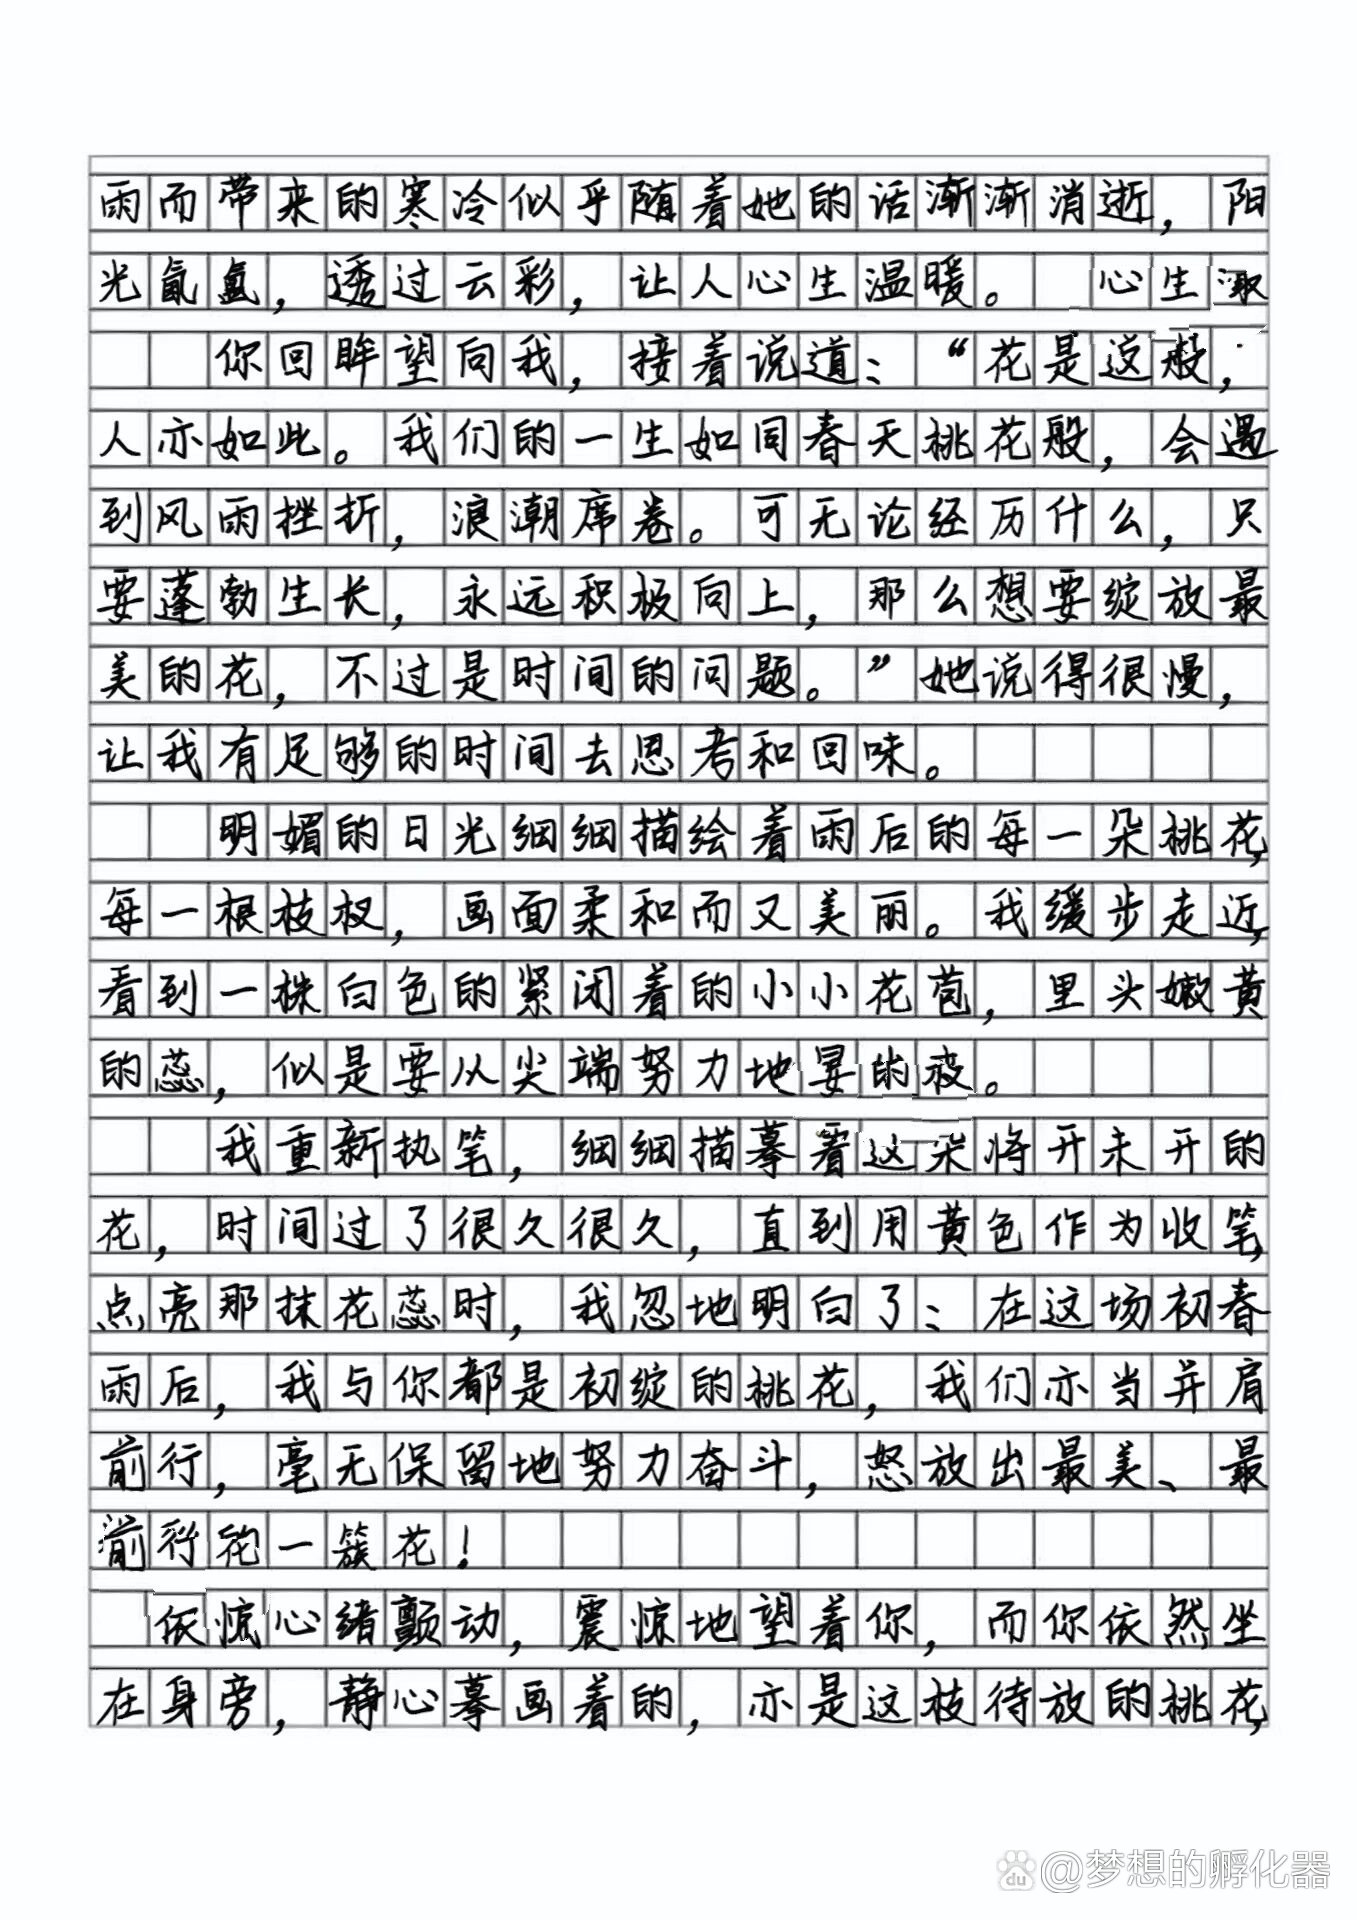 雨而带来的寒冷似乎随着她的话渐渐消逝，阳
光氤氲，透过云彩，让人心生温暖。 心生
你回眸望向我，接着说道：“花是这般，
人亦如此。我们的一生如同春天桃花般，会遇
到风雨挫折，浪潮席卷。可无论经历什么，只
要蓬勃生长，永远积极向上，那么想要绽放最
美的花，不过是时间的问题。”她说得很慢，
让我有足够的时间去思考和回味。
明媚的日光细细描绘着雨后的每一朵桃花，
每一根枝杈，画面柔和而又美丽。我缓步走近，
看到一株白色的紧闭着的小小花苞，里头嫩黄
的蕊，似是要从尖端努力地 的 。
我重新执笔，细细描摹着这朵将开未开的
花，时间过了很久很久，直到用黄色作为收笔，
点亮那抹花蕊时，我忽地明白了：在这场初春
雨后，我与你都是初绽的桃花，我们亦当并肩
前行，毫无保留地努力奋斗，怒放出最美、最
前行 一簇花！
依惊心绪颤动，震惊地望着你，而你依然坐
在身旁，静心摹画着的，亦是这枝待放的桃花，
du @梦想的孵化器